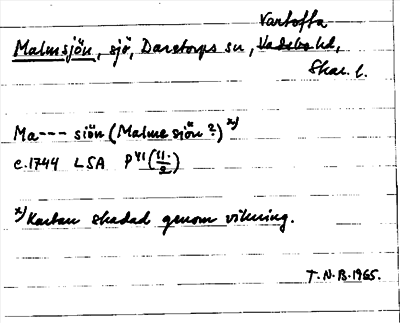 Vartofta
Malmsjön, sjö, Daretorps sn, Vadsbo hd,
Skar. l.
Ma--- siön (Malme siön?) x)
c.1744 LSA P41 (11:/2)
x) Kartan skadad genom vikning.
T.N.B. 1965.